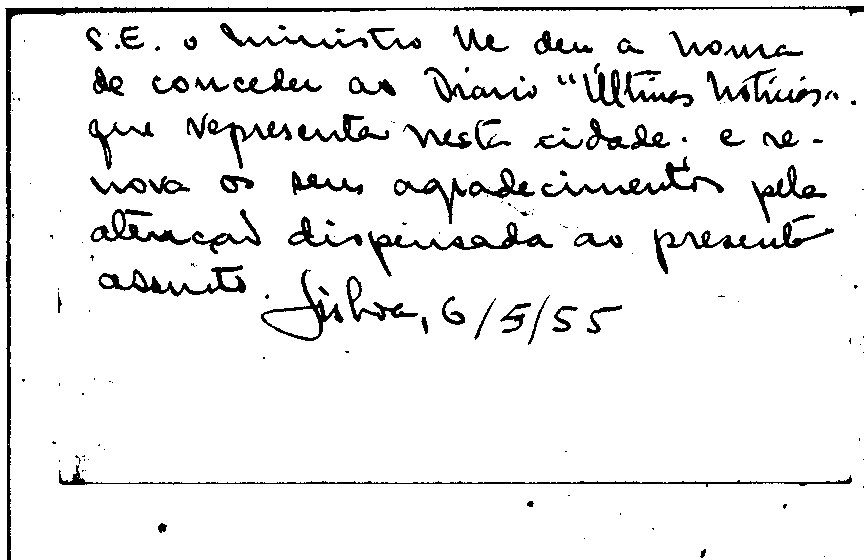 S.E. o Ministro lhe deu a honra
de conceder ao Diario "Últimas Noticias".
que representa nesta cidade. e re-
nova os seus agradecimentos pela
atenção dispensada ao presente
assunto.
Lisboa, 6/5/55